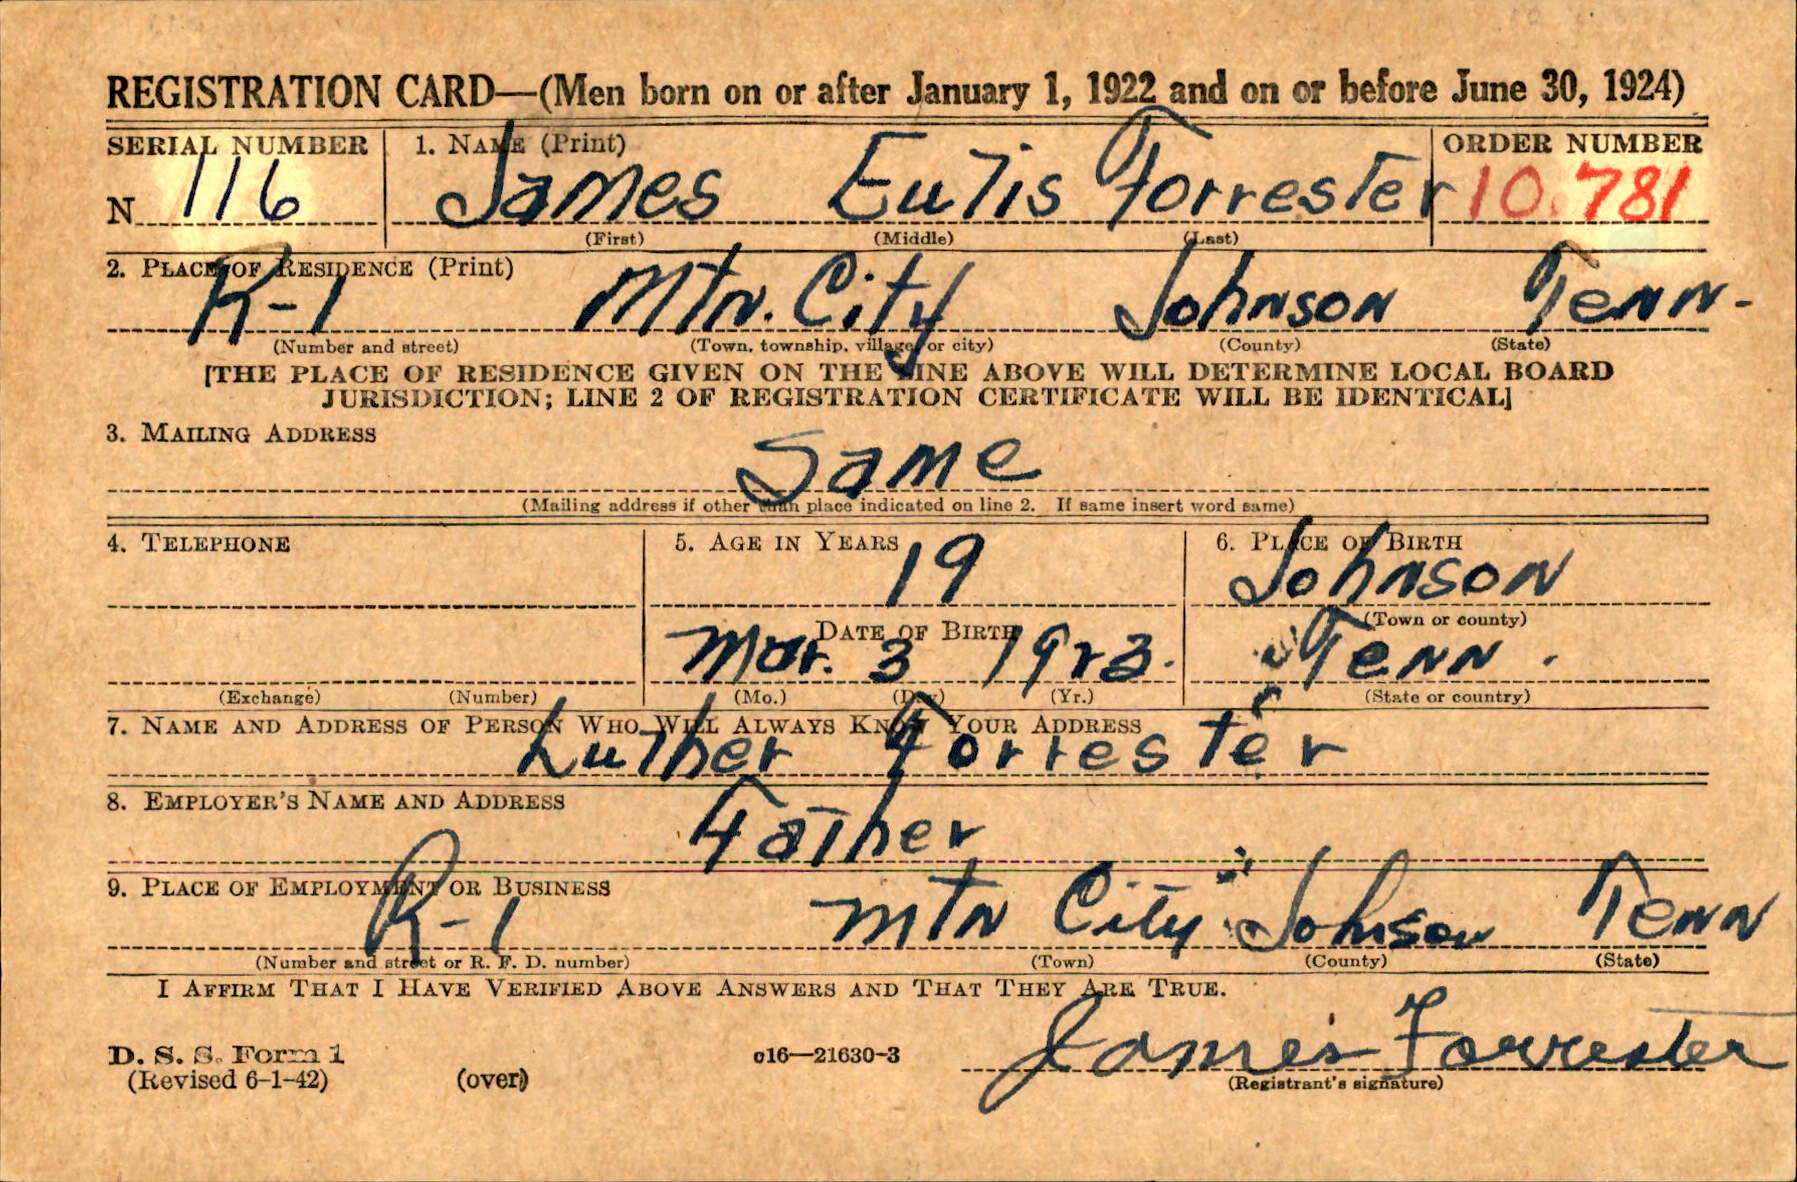 REGISTRATION CARD—(Men born on or after January 1, 1922 and on or before June 30, 1924)
SERIAL NUMBER 1. NAME (Print) ORDER NUMBER
N 116 James Eutis Forrester 10.781
(First) (Middle) (Last)
2. PLACE OF RESIDENCE (Print)
R-1 Mtn. City Johnson Tenn-
(Number and street) (Town, township, village, or city) (County) (State)
[THE PLACE OF RESIDENCE GIVEN ON THE LINE ABOVE WILL DETERMINE LOCAL BOARD
JURISDICTION; LINE 2 OF REGISTRATION CERTIFICATE WILL BE IDENTICAL]
3. MAILING ADDRESS
Same
(Mailing address if other than place indicated on line 2. If same insert word same)
4. TELEPHONE 5. AGE IN YEARS 6. PLACE OF BIRTH
19 Johnson
DATE OF BIRTH (Town or county)
Mar. 3 1923. Tenn.
(Exchange) (Number) (Mo.) (Day) (Yr.) (State or country)
7. NAME AND ADDRESS OF PERSON WHO WILL ALWAYS KNOW YOUR ADDRESS
Luther Forrester
8. EMPLOYER'S NAME AND ADDRESS
Father
9. PLACE OF EMPLOYMENT OR BUSINESS
R-1 Mtn City Johnson Tenn
(Number and street or R. F. D. number) (Town) (County) (State)
I AFFIRM THAT I HAVE VERIFIED ABOVE ANSWERS AND THAT THEY ARE TRUE.
D. S. S. Form 1
(Revised 6-1-42) (over) c16—21630-3 James Forrester
(Registrant's signature)